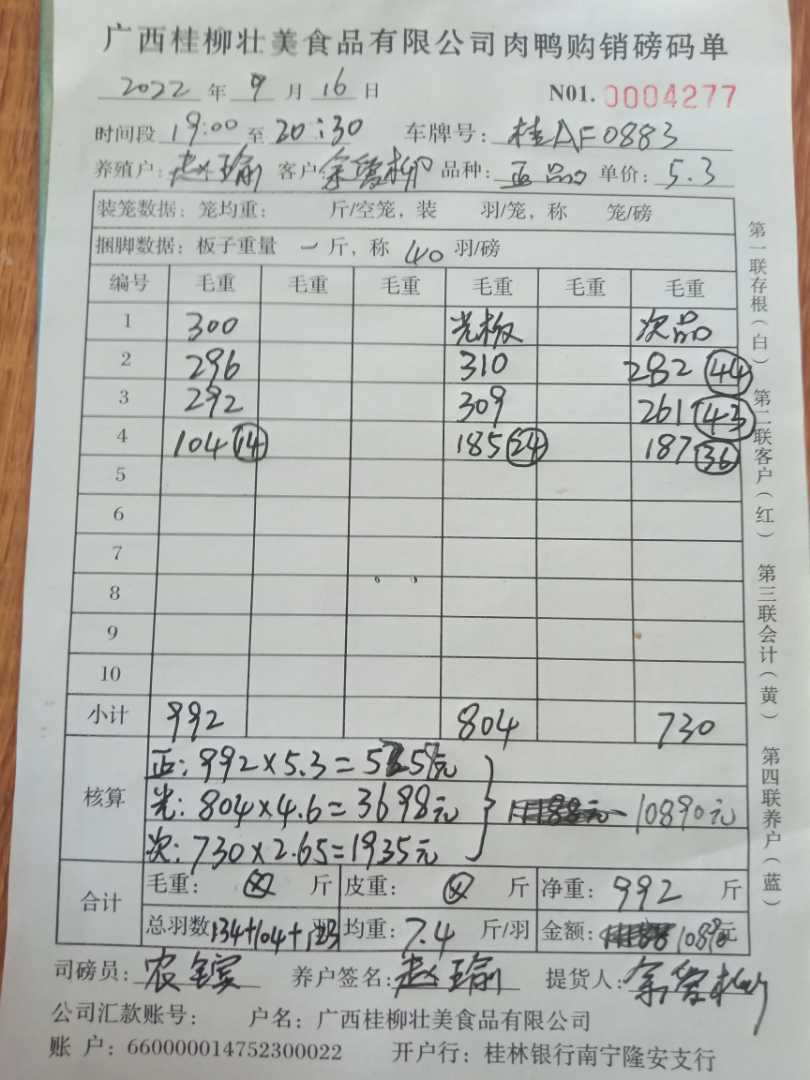 广西桂柳壮美食品有限公司肉鸭购销磅码单
2022年9月16日 N01. 0004277
时间段19:00至20:30 车牌号:桂AF0883
养殖户:赵瑜 客户:余曾柳 品种:正品 单价:5.3
装笼数据:笼均重: 斤/空笼,装 羽/笼,称 笼/磅
捆脚数据:板子重量 一斤,称40羽/磅
编号 毛重 毛重 毛重 毛重 毛重 毛重
1 300 光板 次品
2 296 310 282 44
3 292 309 261 43
4 104 14 185 24 187 36
5
6
7
8
9
10
小计 992 804 730
核算
正:992×5.3=5258元
光:804×4.6=3698元 10890元
次:730×2.65=1935元
合计
毛重: 斤 皮重: 斤 净重:992斤
总羽数134+104+ 均重:7.4斤/羽 金额:10890元
司磅员: 养户签名:赵瑜 提货人:余曾柳
公司汇款账号: 户名:广西桂柳壮美食品有限公司
账 户:660000014752300022 开户行:桂林银行南宁隆安支行
第一联存根(白) 第二联客户(红) 第三联会计(黄) 第四联养户(蓝)